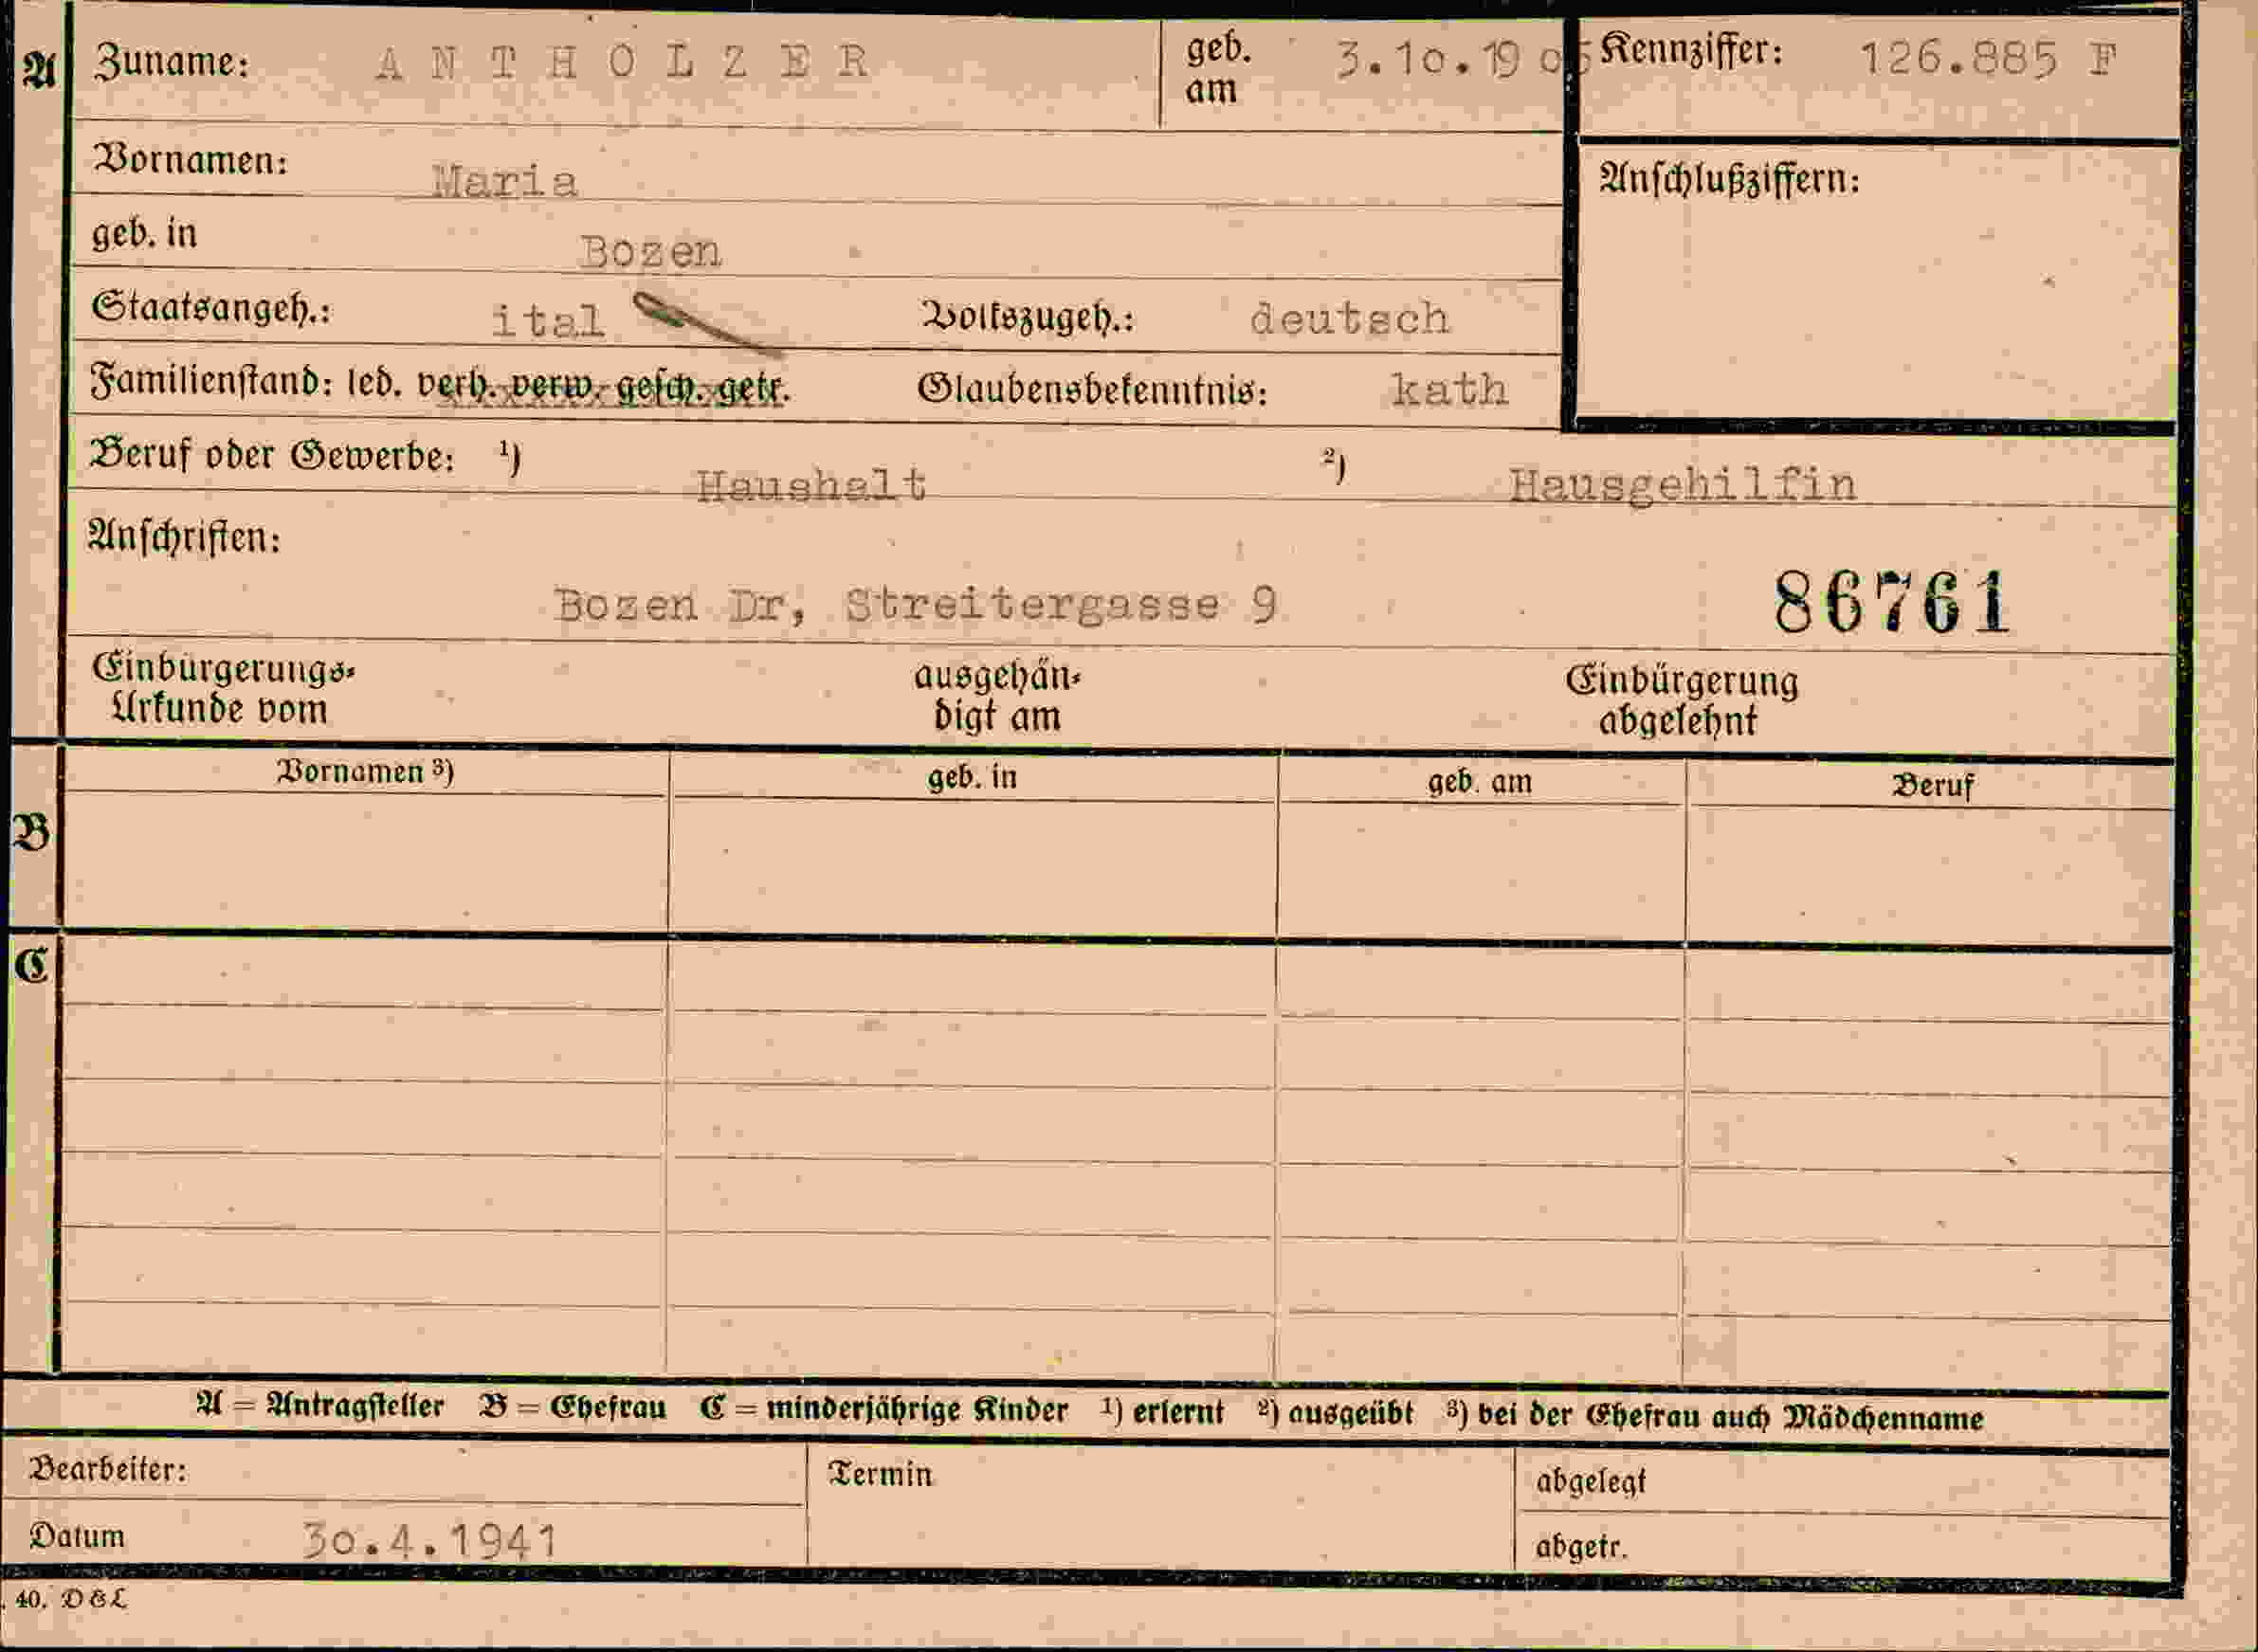 A Zuname: ANTHOLZER geb. am 3.10.1905 Kennziffer: 126.885 F
Vornamen: Maria Anschlußziffern:
geb. in Bozen
Staatsangeh.: ital Volkszugeh.: deutsch
Familienstand: led. verh. verw. gesch. getr. Glaubensbekenntnis: kath
Beruf oder Gewerbe: ¹) Haushalt ²) Hausgehilfin
Anschriften:
Bozen Dr, Streitergasse 9 86761
Einbürgerungs-Urkunde vom ausgehändigt am Einbürgerung abgelehnt
Vornamen ³) geb. in geb. am Beruf
B
C
A = Antragsteller B = Ehefrau C = minderjährige Kinder ¹) erlernt ²) ausgeübt ³) bei der Ehefrau auch Mädchenname
Bearbeiter: Termin abgelegt
Datum 30.4.1941 abgetr.
40. D&L